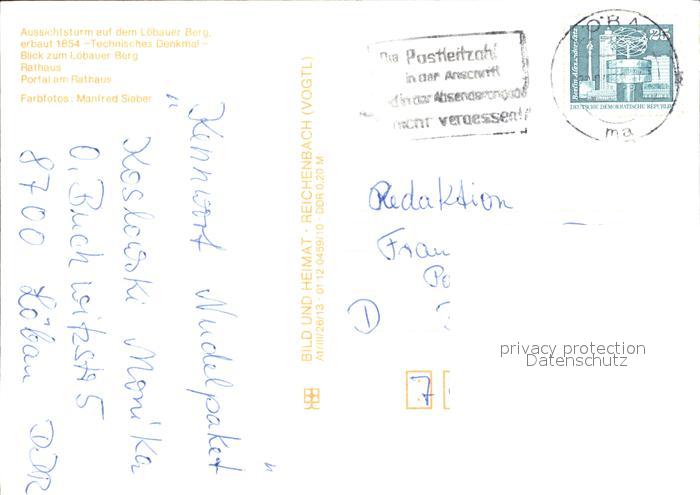 Aussichtsturm auf dem Löbauer Berg,
erbaut 1854 –Technisches Denkmal–
Blick zum Löbauer Berg
Rathaus
Portal am Rathaus
Farbfotos: Manfred Sieber
"Kennwort Nudelpaket"
Koslowski Monika
O. Buchwitzstr 5
8700 Löbau DDR
BILD UND HEIMAT · REICHENBACH (VOGTL)
A1/III/26/13 · 01 12 0459/10 · DDR 0,20 M
Die Postleitzahl
in der Anschrift
in der Absenderangabe
nicht vergessen!
25
Berlin, Alexanderplatz
DEUTSCHE DEMOKRATISCHE REPUBLIK
ma
Redaktion
Fran
Po
D
7
privacy protection
Datenschutz